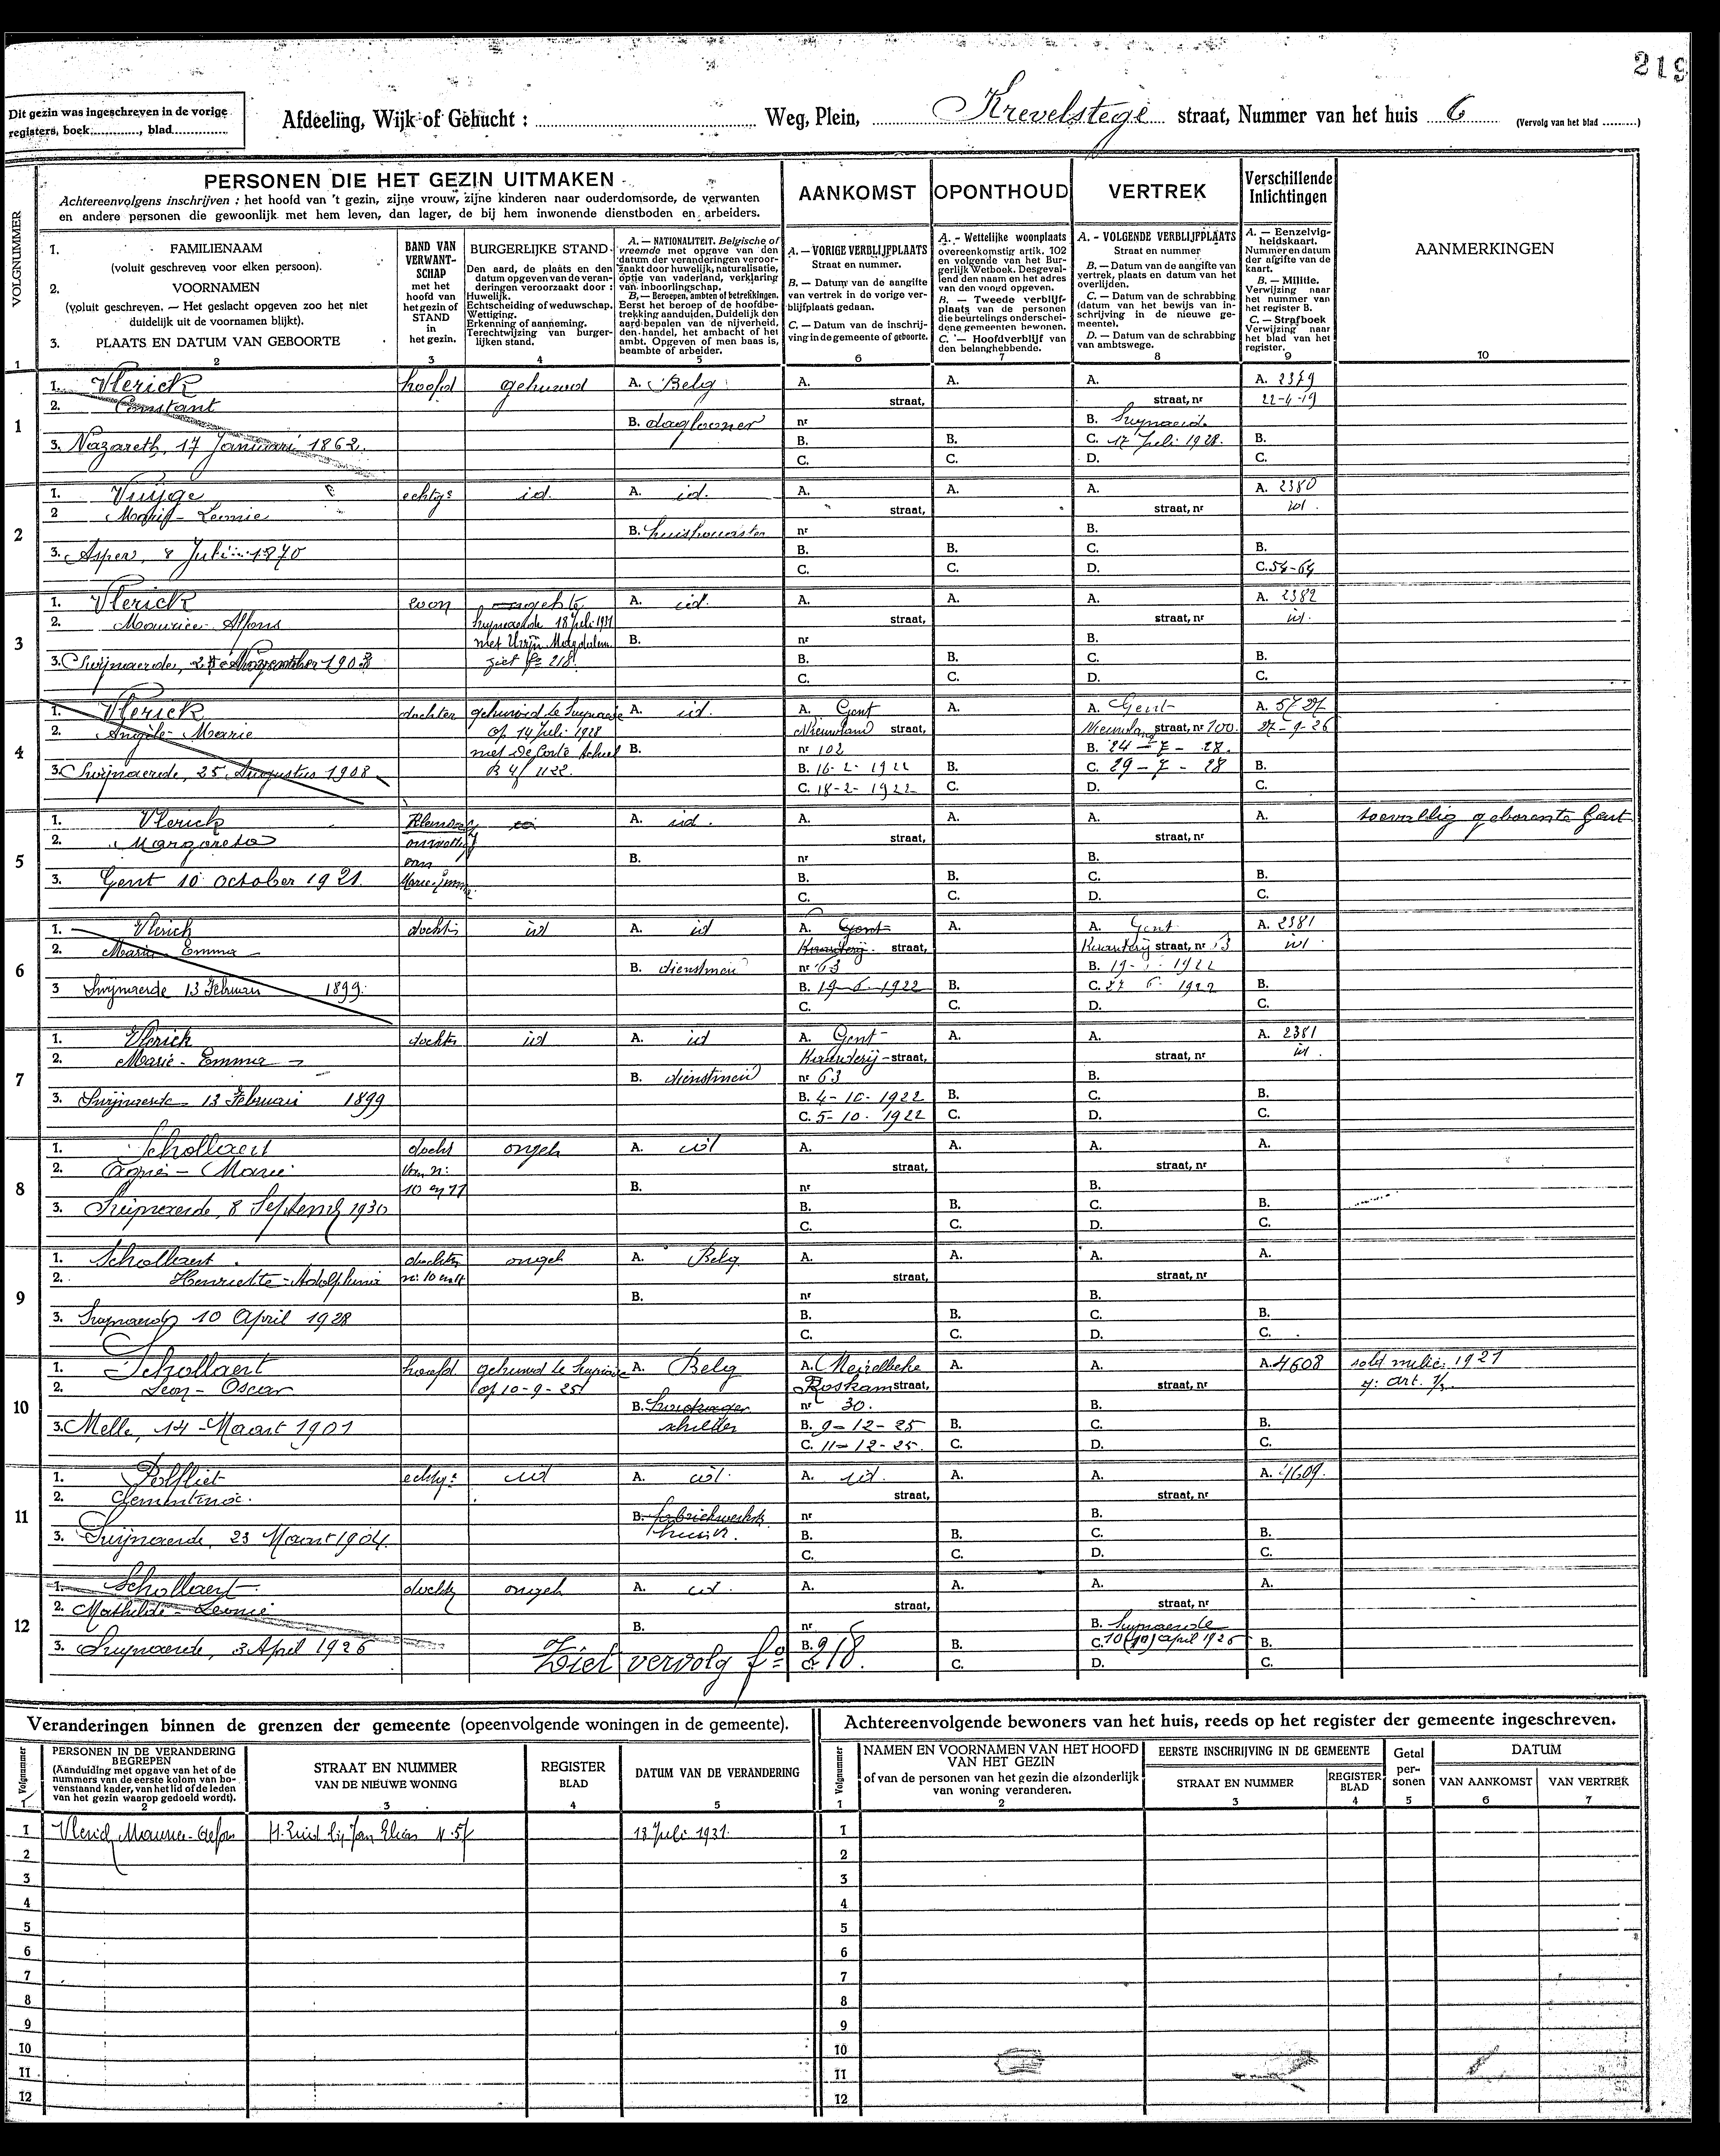 219
Dit gezin was ingeschreven in de vorige
registers, boek............, blad...............
Afdeeling, Wijk of Gehucht : ........................ Weg, Plein, Krevelstege straat, Nummer van het huis 6 (Vervolg van het blad .........)
VOLGNUMMER
PERSONEN DIE HET GEZIN UITMAKEN
Achtereenvolgens inschrijven : het hoofd van 't gezin, zijne vrouw, zijne kinderen naar ouderdomsorde, de verwanten
en andere personen die gewoonlijk met hem leven, dan lager, de bij hem inwonende dienstboden en arbeiders.
1. FAMILIENAAM
(voluit geschreven voor elken persoon).
2. VOORNAMEN
(voluit geschreven. — Het geslacht opgeven zoo het niet
duidelijk uit de voornamen blijkt).
3. PLAATS EN DATUM VAN GEBOORTE
BAND VAN
VERWANT-
SCHAP
met het
hoofd van
het gezin of
STAND
in
het gezin.
BURGERLIJKE STAND
Den aard, de plaats en den
datum opgeven van de veran-
deringen veroorzaakt door :
Huwelijk.
Echtscheiding of weduwschap.
Wettiging.
Erkenning of aanneming.
Terechtwijzing van burger-
lijken stand.
A. — NATIONALITEIT. Belgische of
vreemde met opgave van den
datum der veranderingen veroor-
zaakt door huwelijk, naturalisatie,
optie van vaderland, verklaring
van inboorlingschap.
B. — Beroepen, ambten of betrekkingen.
Eerst het beroep of de hoofdbe-
trekking aanduiden. Duidelijk den
aard bepalen van de nijverheid,
den handel, het ambacht of het
ambt. Opgeven of men baas is,
beambte of arbeider.
AANKOMST
A. — VORIGE VERBLIJFPLAATS
Straat en nummer.
B. — Datum van de aangifte
van vertrek in de vorige ver-
blijfplaats gedaan.
C. — Datum van de inschrij-
ving in de gemeente of geboorte.
OPONTHOUD
A. - Wettelijke woonplaats
overeenkomstig artik. 102
en volgende van het Bur-
gerlijk Wetboek. Desgeval-
lend den naam en het adres
van den voogd opgeven.
B. — Tweede verblijf-
plaats van de personen
die beurtelings onderschei-
dene gemeenten bewonen.
C. — Hoofdverblijf van
den belanghebbende.
VERTREK
A. - VOLGENDE VERBLIJFPLAATS
Straat en nummer
B. — Datum van de aangifte van
vertrek, plaats en datum van het
overlijden.
C. — Datum van de schrabbing
(datum van het bewijs van in-
schrijving in de nieuwe ge-
meente).
D. — Datum van de schrabbing
van ambtswege.
Verschillende
Inlichtingen
A. — Eenzelvig-
heidskaart.
Nummer en datum
der afgifte van de
kaart.
B. — Militie.
Verwijzing naar
het nummer van
het register B.
C. — Strafboek
Verwijzing naar
het blad van het
register.
AANMERKINGEN
1 2 3 4 5 6 7 8 9 10
1. Vlerick hoofd gehuwd A. Belg A. A. A. A. 2379
2. Constant straat, straat, nr 22-4-19
1 B. daglooner nr B. Swynaerde
3. Nazareth, 17 Januari 1862. B. B. C. 17 Juli 1928. B.
C. C. D. C.
1. Vuijge echtg. id. A. id. A. A. A. A. 2380
2 Marie - Leonie straat, straat, nr id.
2 B. huishoudster nr B.
3. Asper, 8 Juli 1870 B. B. C. B.
C. C. D. C. 54-64
1. Vlerick zoon ongehte A. id. A. A. A. A. 2382
2. Maurice Alfons Swynaerde 18 Juli 1931 straat, straat, nr id.
3 met B. nr B.
3. Swijnaerde, 1903 ziet f° 218 B. B. C. B.
C. C. D. C.
1. Vlerick dochter gehuwd te Swynaerde A. id. A. Gent A. A. Gent A. 5727
2. Angèle Marie op 14 Juli 1928 Nieuwland straat, Nieuwland straat, nr 100. 27-9-26
4 met De Corte B. nr 102 B. 24 - 7 - 28.
3. Swijnaerde, 25 Augustus 1908 B. 16-2-1922 B. C. 29 - 7 - 28 B.
C. 18-2-1922 C. D. C.
1. Vlerick id A. id. A. A. A. A. toevallig geboren te Gent
2. Margareta straat, straat, nr
5 van B. nr B.
3. Gent 10 october 1921. Marie-Emma B. B. C. B.
C. C. D. C.
1. Vlerick dochter id A. id A. Gent A. A. Gent A. 2381
2. Maria Emma straat, straat, nr id.
6 B. dienstmeid nr 63 B.
3 Swynaerde 13 Februari 1899. B. 19-6-1922 B. C. B.
C. C. D. C.
1. Vlerick dochter id A. id A. Gent A. A. A. 2381
2. Marie - Emma straat, straat, nr id.
7 B. dienstmeid nr 63 B.
3. Swijnaerde 13 Februari 1899 B. 4-10-1922 B. C. B.
C. 5-10-1922 C. D. C.
1. Schollaert docht ongeh A. id A. A. A. A.
2. Agnes - Marie van n: straat, straat, nr
8 10 en 11 B. nr B.
3. Swijnaerde, 8 September 1930 B. B. C. B.
C. C. D. C.
1. Schollaert dochter ongeh A. Belg A. A. A. A.
2. Henriette - Adolphina n: 10 en 11 straat, straat, nr
9 B. nr B.
3. Swynaerde 10 April 1928 B. B. C. B.
C. C. D. C.
1. Schollaert hoofd gehuwd te Swynaerde A. Belg A. Meirelbeke A. A. A. 4608 sold milic: 1921
2. Leon - Oscar op 10-9-25 Roskam straat, straat, nr
10 B. nr 30. B.
3. Melle, 14 Maart 1901 schilder B. 9-12-25 B. C. B.
C. 11-12-25. C. D. C.
1. Polfliet echtg. id A. id. A. id. A. A. A. 4609.
2. Clementina. straat, straat, nr
11 B. fabriekwerkster nr B.
3. Swijnaerde, 23 Maart 1904. B. B. C. B.
C. C. D. C.
1. Schollaert docht ongeh A. id. A. A. A. A.
2. Mathilde - Leonie straat, straat, nr
12 B. nr B. Swynaerde
3. Swynaerde, 3 April 1926 B. B. C. 10 (10) april 1926 B.
Ziet vervolg f° 218. C. C. D. C.
Veranderingen binnen de grenzen der gemeente (opeenvolgende woningen in de gemeente).
Volgnummer
PERSONEN IN DE VERANDERING
BEGREPEN
(Aanduiding met opgave van het of de
nummers van de eerste kolom van bo-
venstaand kader, van het lid of de leden
van het gezin waarop gedoeld wordt).
STRAAT EN NUMMER
VAN DE NIEUWE WONING
REGISTER
BLAD
DATUM VAN DE VERANDERING
1 2 3 4 5
1 Vlerick Maurice-Alfons H. Zuid bij Jan 18 Juli 1931.
2
3
4
5
6
7
8
9
10
11
12
Achtereenvolgende bewoners van het huis, reeds op het register der gemeente ingeschreven.
Volgnummer
NAMEN EN VOORNAMEN VAN HET HOOFD
VAN HET GEZIN
of van de personen van het gezin die afzonderlijk
van woning veranderen.
EERSTE INSCHRIJVING IN DE GEMEENTE
STRAAT EN NUMMER
REGISTER
BLAD
Getal
per-
sonen
DATUM
VAN AANKOMST
VAN VERTREK
1 2 3 4 5 6 7
1
2
3
4
5
6
7
8
9
10
11
12